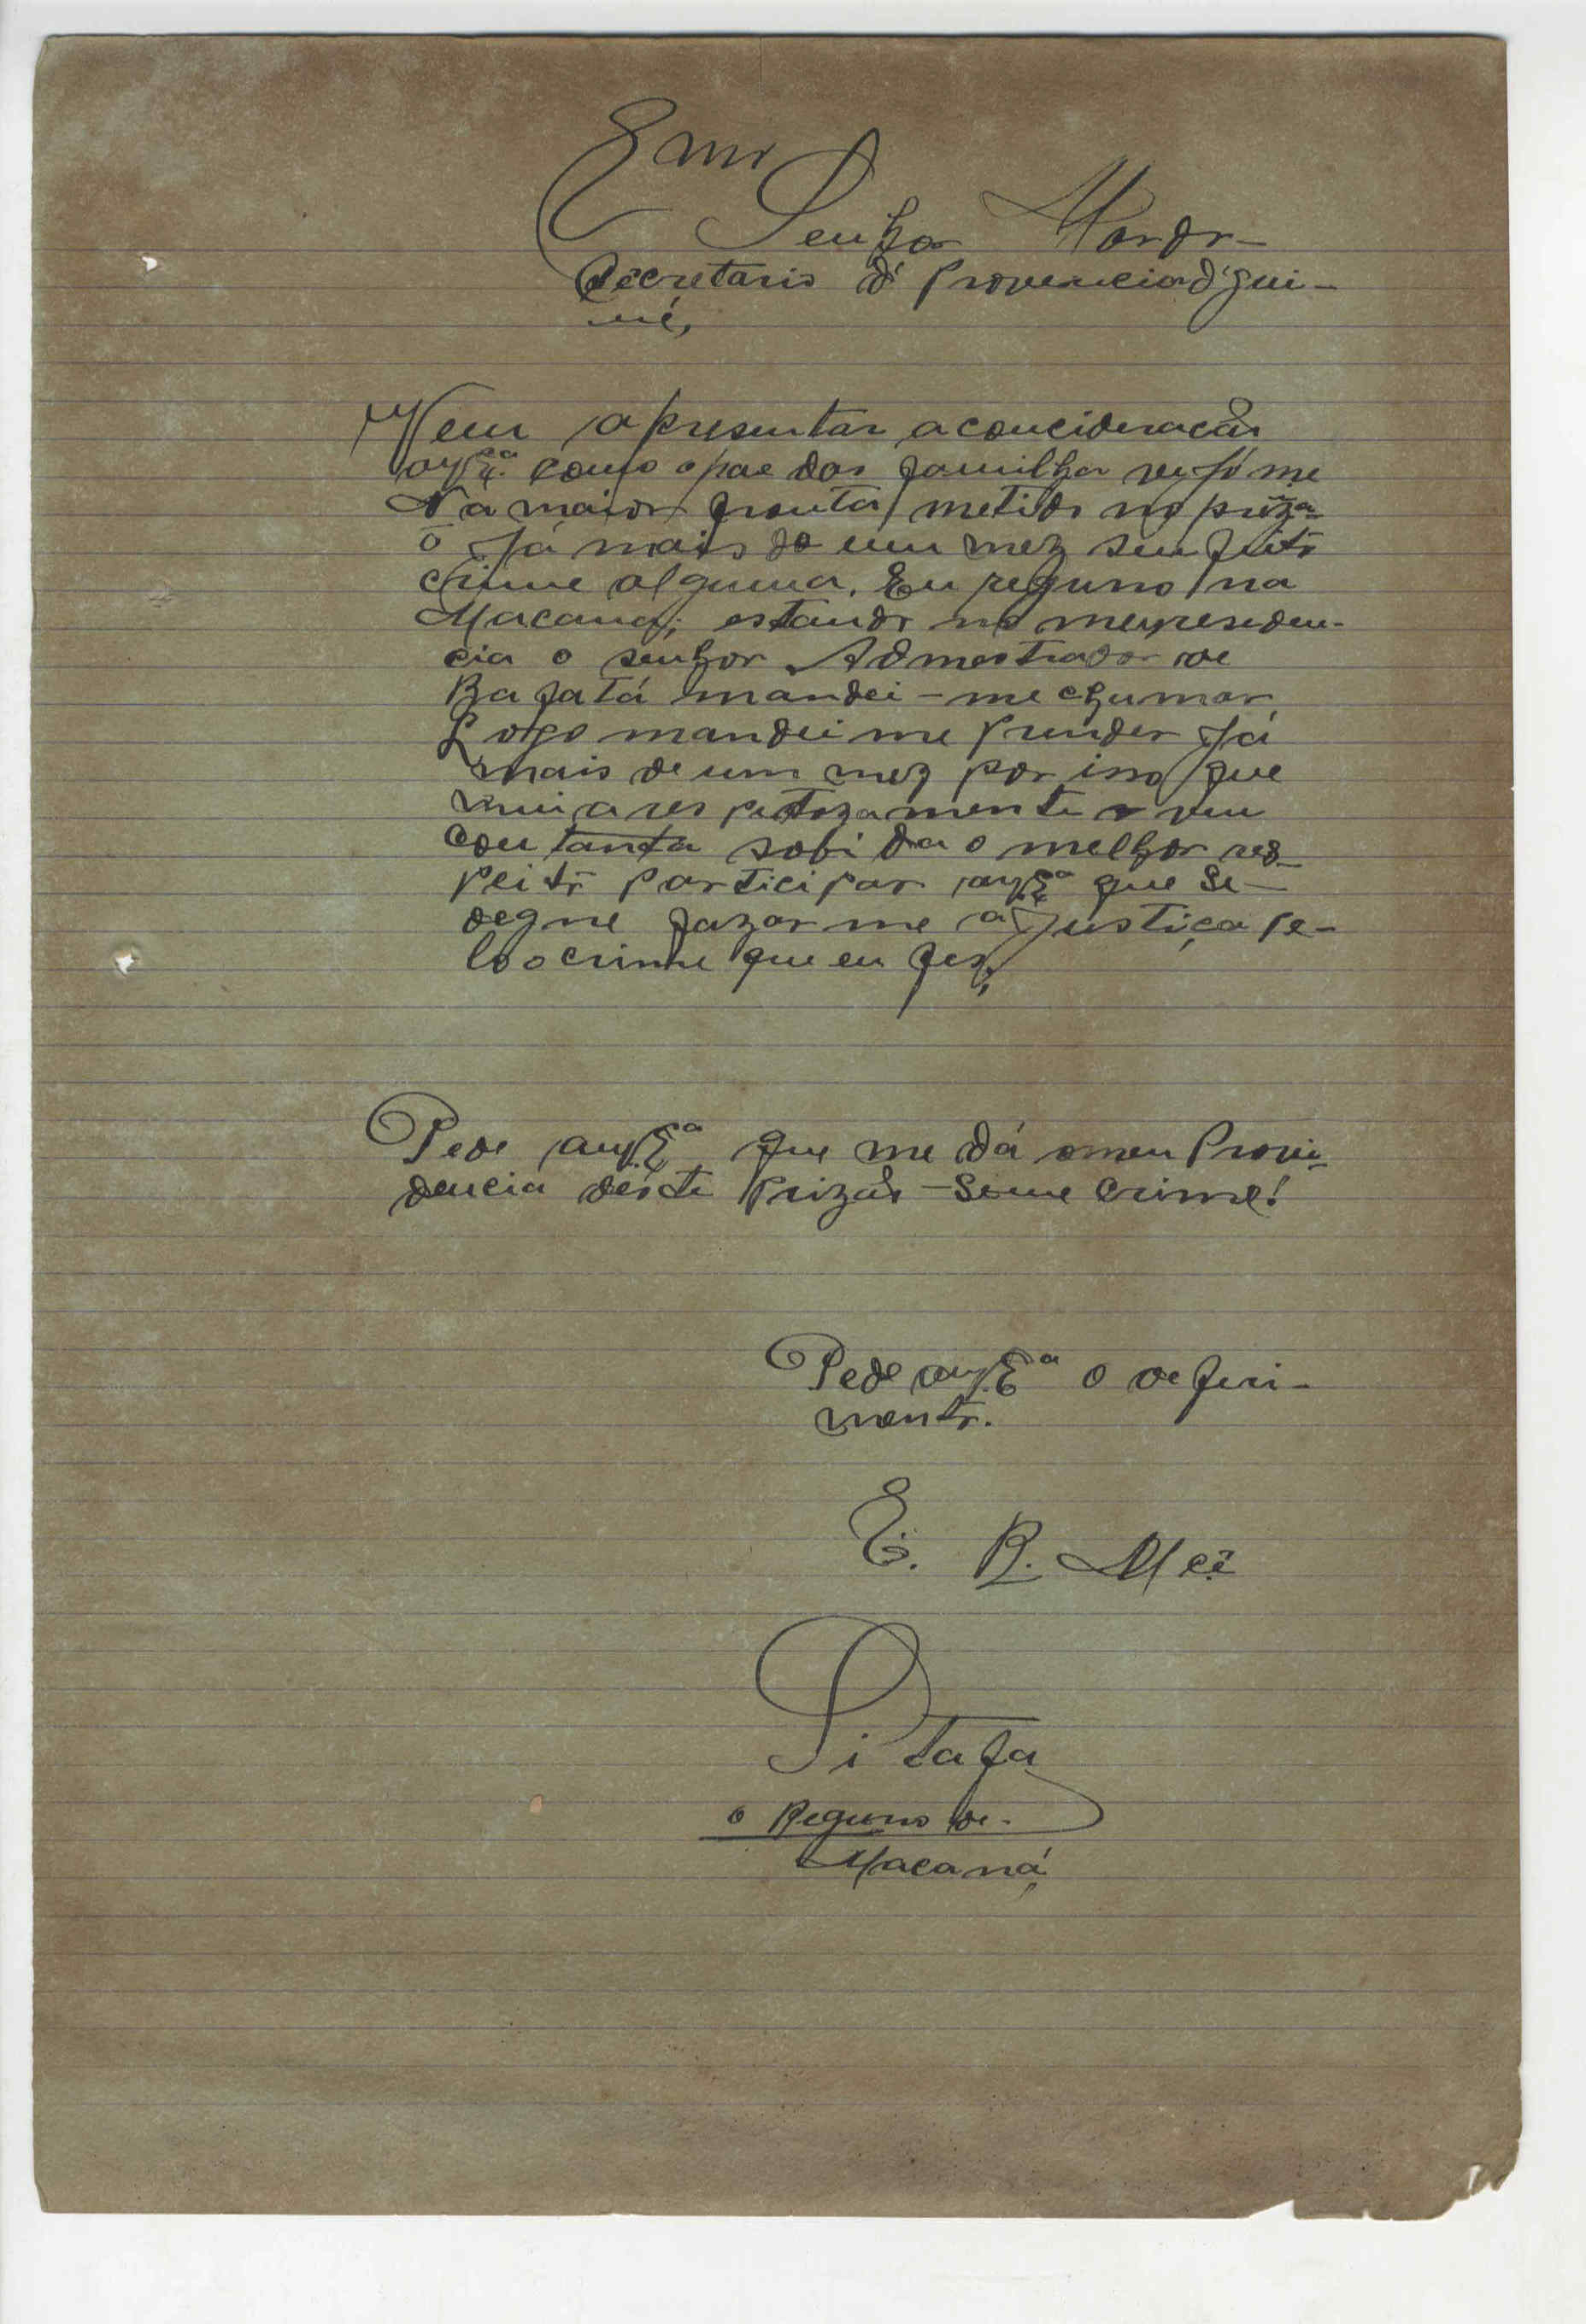 Emo
Senhor
Secretario d' Provencia d'gui-
né,
Vem apresentar a concideracão
a V. Exª. como o pae das familha
Na maior metido no priza-
o Já mais de um mez sen feito
crime alguma. Eu regulo na
Macaná; estando no
cia o senhor Admestrador de
Bafatá mandei-me chumar
Logo mandei me prender Já
mais de um mez por isso que
mui a respetozamente vem
con tanta sobida o melhor res-
peito participar a V. Eª que Se-
degne fazar me a Justiça pe-
lo o crime que eu fes;
Pede a V. Eª que me dá o meu Provi-
dencia déste Prizão - Seme crime!
Pede a V. Eª o deferi-
mento.
E. R. Mcê
Sitafa
o Regulo de-
Macaná